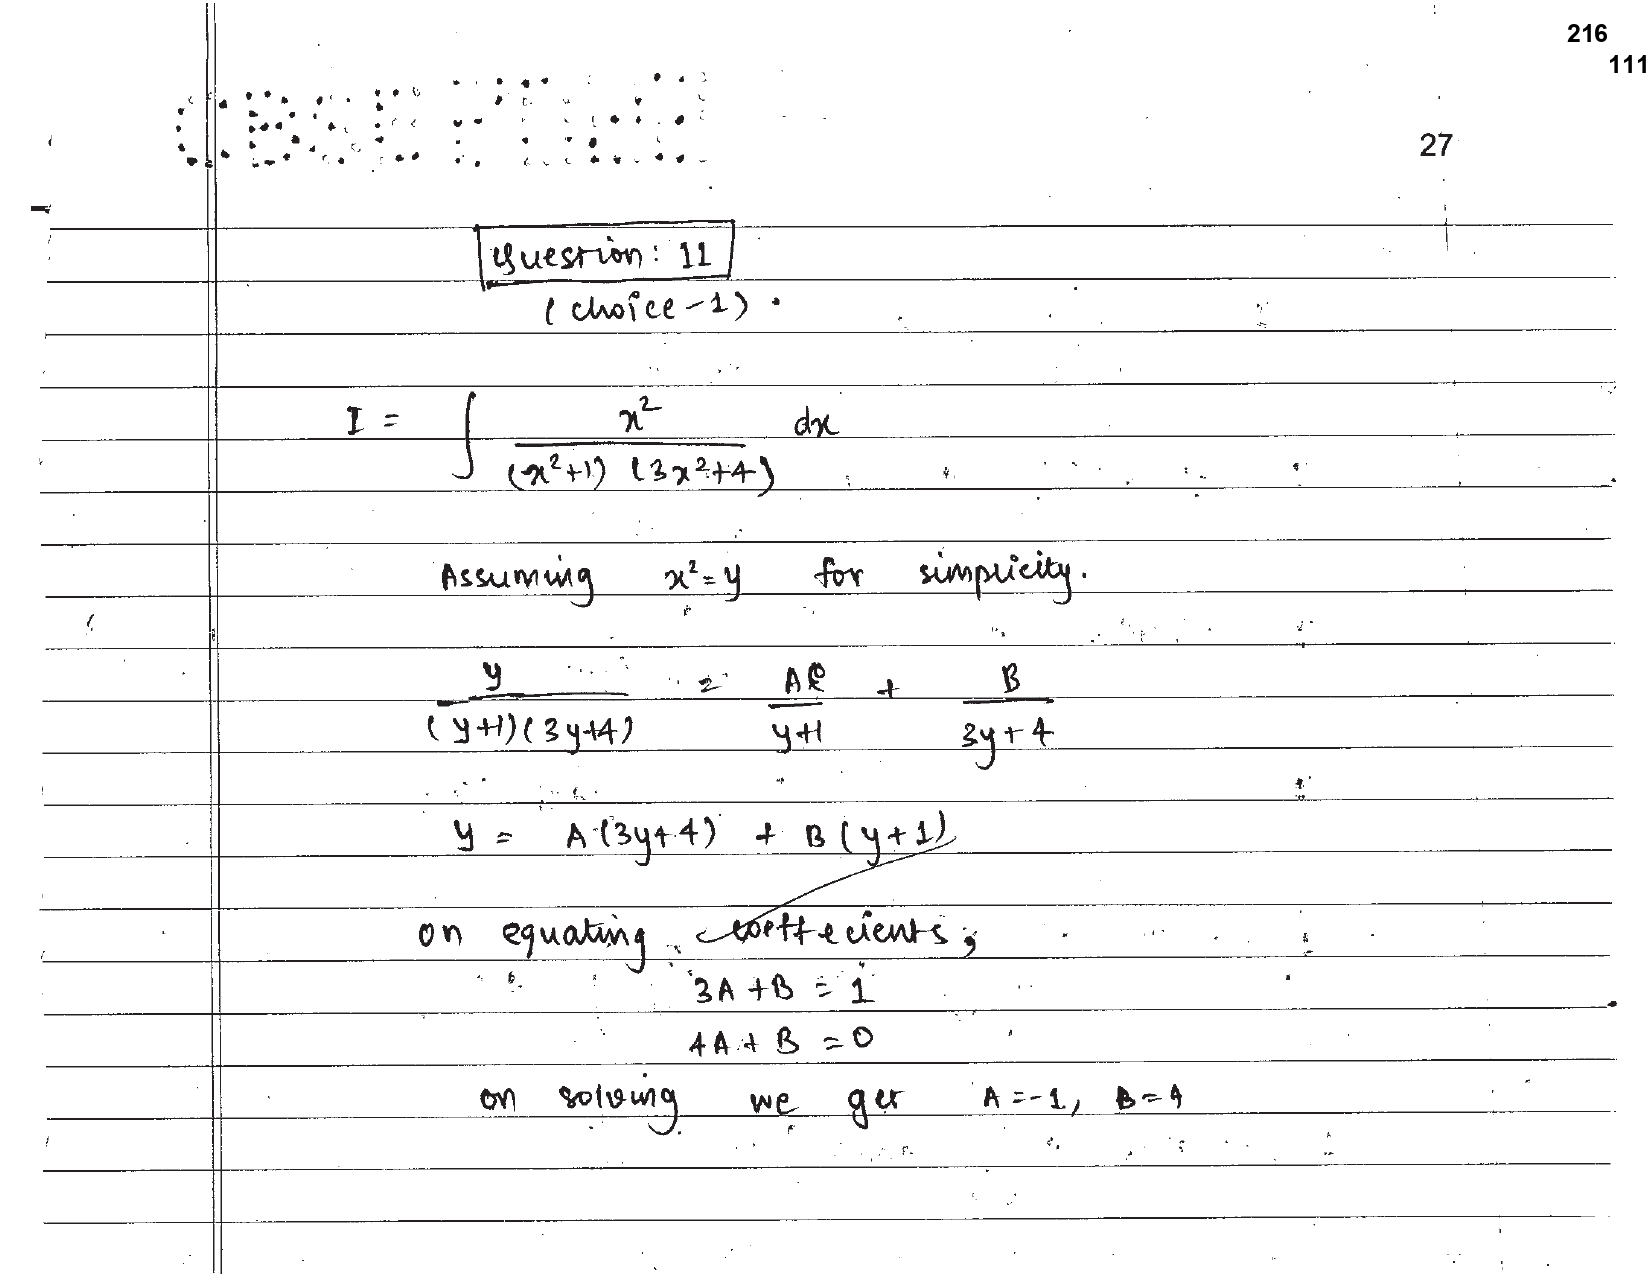 216
111
CBSE
27
Question: 11
(choice-1).
I = ∫ x² / (x²+1) (3x²+4) dx
Assuming x²=y for simplicity.
y / (y+1)(3y+4) = A / y+1 + B / 3y+4
y = A(3y+4) + B(y+1)
on equating coeffecients;
3A+B = 1
4A+B = 0
on solving we get A=-1, B=4